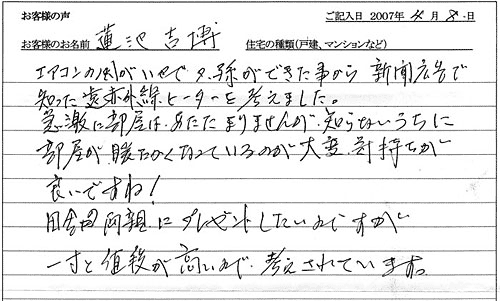 お客様の声 ご記入日 2007年 4月 8日
お客様のお名前 蓮池 吉博 住宅の種類(戸建、マンションなど)
エアコンの風がいやで又、孫ができた事から 新聞広告で
知った遠赤外線ヒーターを考えました。
急激に部屋は、あたたまりませんが、知らないうちに
部屋が、暖たかくなっているのが大変、気持ちが
良いですね!
田舎の両親にプレゼントしたいのですが
一寸と値段が高いので、考えされています。